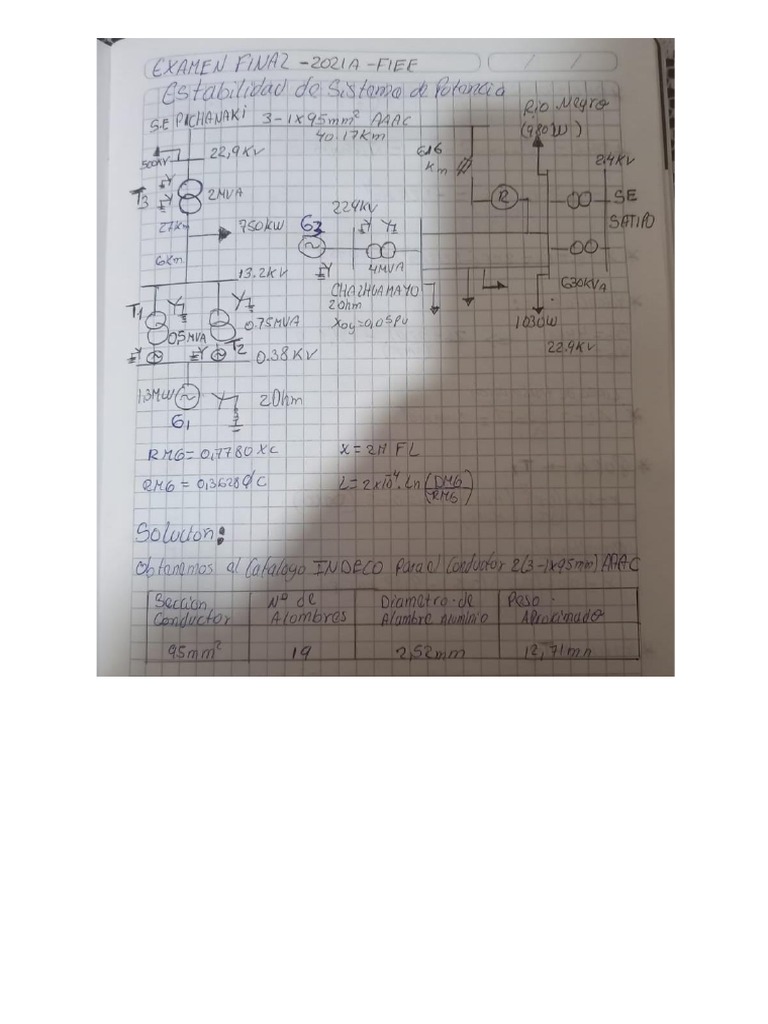 EXAMEN FINAL -2021A -FIEE
Estabilidad de Sistema de Potencia
S.E PICHANAKI 3-1x95mm² AAAC
40.17Km
Rio Negro
(980W)
616
Km
500KV
22,9KV
2.4KV
T3
2MVA
R
SE
SATIPO
27Km
750KW
G3
22.4KV
6Km
13.2KV
4MVA
CHALHUAMAYO
2Ohm
X0g=0,05Pu
630KVA
1030W
22.9KV
T1
0,5MVA
0.75MVA
T2
0.38KV
1.3MW
G1
2Ohm
RMG=0,7780 XC
X=2π FL
RMG = 0,3628dC
L=2x10⁻⁴.Ln(DMG/RMG)
Solucion:
Obtenemos al Catalogo INDECO Para el Conductor 2(3-1x95mm) AAAC
Seccion Conductor | Nº de Alambres | Diametro de Alambre Aluminio | Peso Aproximado
95mm² | 19 | 2,52mm | 12,71mn